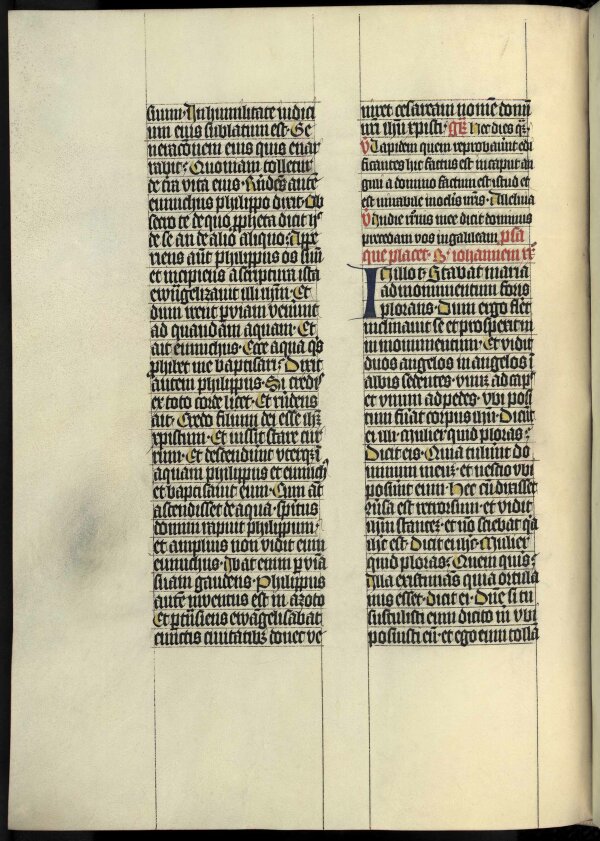 suum · In humilitate iudici
um eius sublatum est · Ge
neracionem eius quis enar
rabit · Quoniam tolletur
de t̄ra vita eius · R̄ndēs autē
eunuchus philippo dixit · Ob
secro te de quo ꝓpheta dicit h̄
de se an de alio aliquo · Ape
riens aūt philippus os suū
et incipiens a scriptura ista
ewāgelizauit illi ih̄m · Et
dum irent ꝑ viam venerūt
ad quandam aquam · Et
ait eunuchus · Ecce aqua qͥs
ꝓhibet me baptisari · Dixit
autem philippus · Si credis
ex toto corde licet · Et rn̄dens
ait · Credo filium dei esse ihm̄
xpistum · Et iussit stare cur
rum · Et descenderunt vterqꝫ ī
aquam philippus et eunuchꝰ
et baptisauit eum · Cum aūt
ascendisset de aqua · spiritus
domini rapuit philippum ·
et amplius non vidit eum
eunuchus · Ibat enim ꝑ viā
suam gaudens · Philippus
autē inuentus est in azoto
Et ꝑtransiens ewāgelisabat
cunctis ciuitatibꝫ donec ve
niret cesaream nomē domi
ni ih̄u xpisti · gr̄ Hec dies q̄
v̄ Lapidem quem reprobauerūt edi
ficantes hic factus est in caput an
guli a domino factum est istud et
est mirabile in oclis nr̄is · Alleluia
v̄ In die resurr̄ionis mee dicit dominus
precedam vos in galileam · ꝓsa
que placet · S · iohannem · xx̄
In illo t̄ · Stabat maria
ad monumentum foris
plorans · Dum ergo fleret
inclinauit se et prospexit in
in monumentum · Et vidit
duos angelos in angelos ī
albis sedentes · vnūꝫ ad capᵗ
et vnum ad pedes · vbi posi
tum fu͛at corpus ih̄u · Dicūt
ei illi · Mulier quid ploras ·
Dicit eis · Quia tulerunt do
minum meuꝫ · et nescio vbi
posuerunt eum · Hec cū dixisset
r̄usa est retrorsum · et vidit
ih̄m stanteꝫ · et nō sciebat qꝛ
ih̄c est · Dicit ei ih̄c · Mulier
quid ploras · Quem queris ·
Illa existimās quia ortola
nus esset · dicit ei · Dn̄e si tu
sustulisti eum dicito m̄ vbi
posuisti eū · et ego eum tollā